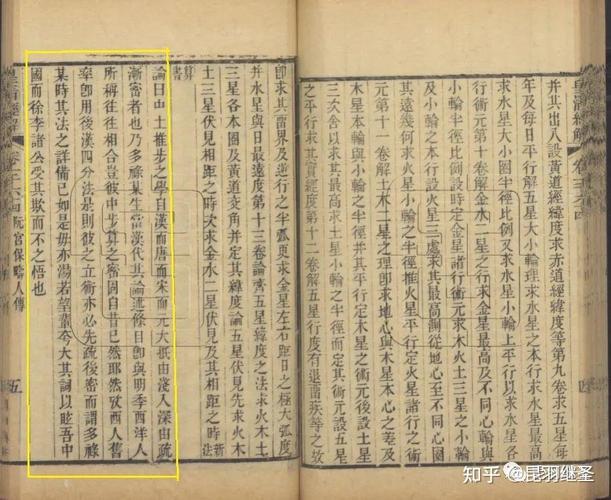 并其出入設黃道經緯度求赤道經緯度等第九卷求五星每
年及每日平行解五星大小輪理求水星之本行求水星最高
求水星大小圈半徑比例又求水星小輪上平行以求水星各
行術元第十卷解金水二星之行求金星最高及不同心輪與
小輪半徑比例設時定金星諸行術元求木火土三星之小輪
及小輪之本行設火星三處求其最高測從地心至不同心圈
其遠幾何求火星小輪之半徑推火星平行定火星諸行之術
元第十一卷解土木二星之理卽求地心與木星本心之差及
木星本輪與小輪之半徑并其平行定木星之術元後設土星
三次舍以求其最高求土星小輪之半徑而定其術元設五星
之平行求其實經度第十二卷解五星行度有退留疾等之故
皇清經解
卷三
卽求其留界及逆行之半弧更求金星左右距日之極大弧度
并水星與日最遠度第十三卷論齊五星緯度之法求火木土
三星各本圈及黃道交角并定其緯度論五星伏見先求火木
土三星伏見相距之時次求金水二星伏見及其相距之時新法
算書
論曰中土推步之學自漢而唐而宋而元大抵由淺入深由疏
漸密者也乃多祿某生當漢代其論述條目卽與明季西洋人
所稱往往相合豈彼中步算之密固自昔已然耶然攷西人舊
率卽用後漢四分法是則彼之立術亦必先疏後密而謂多祿
某時其法之詳備已如是毋亦湯若望輩夸大其詞以眩吾中
國而徐李諸公受其欺而不之悟也
阮宮保疇人傳
五
知乎 @昆羽继圣